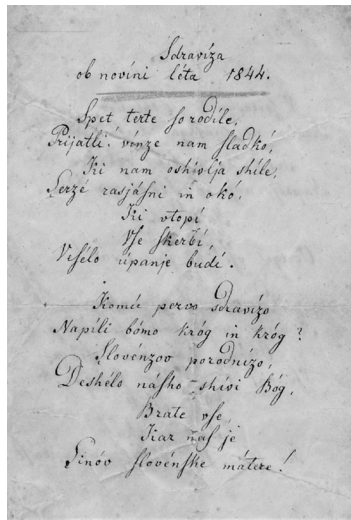 Sdravíza
ob novíni léta 1844.
Spet terte so rodíle,
Prijatli! vínze nam sladkó,
Ki nam oshivlja shíle,
Serzé rasjásni in okó,
Ki vtopí
Vse skerbí,
Visélo úpanje budí.
Komú pervo sdravízo
Napíli bómo króg in króg?
Slovénzov porodnízo,
Deshélo násho-shívi Bóg,
Brate vse,
Kar nas je
Sinóv slovénske mátere!